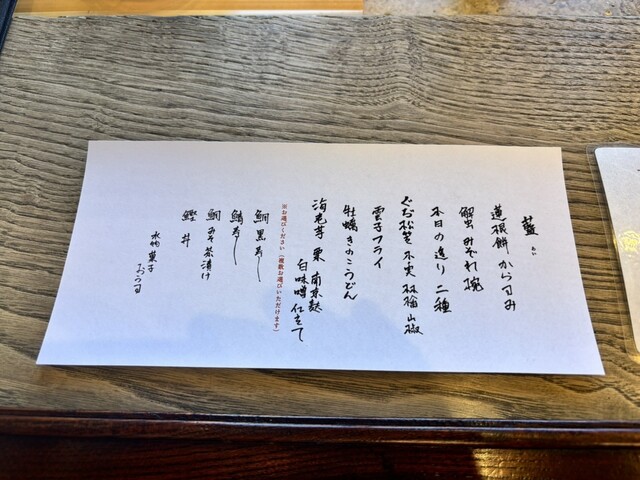 藍
あい
蓮根餅 からすみ
蟹 みぞれ椀
本日の造り 二種
ぐじ松笠 木の実 林檎 山椒
雲子フライ
牡蠣 きのこうどん
海老芋 栗 南京麩
白味噌仕立て
※お選びください(複数お選びいただけます)
鯛 黒寿し
鯖寿し
鯛 みそ茶漬け
鰹 丼
水物 菓子
おうす